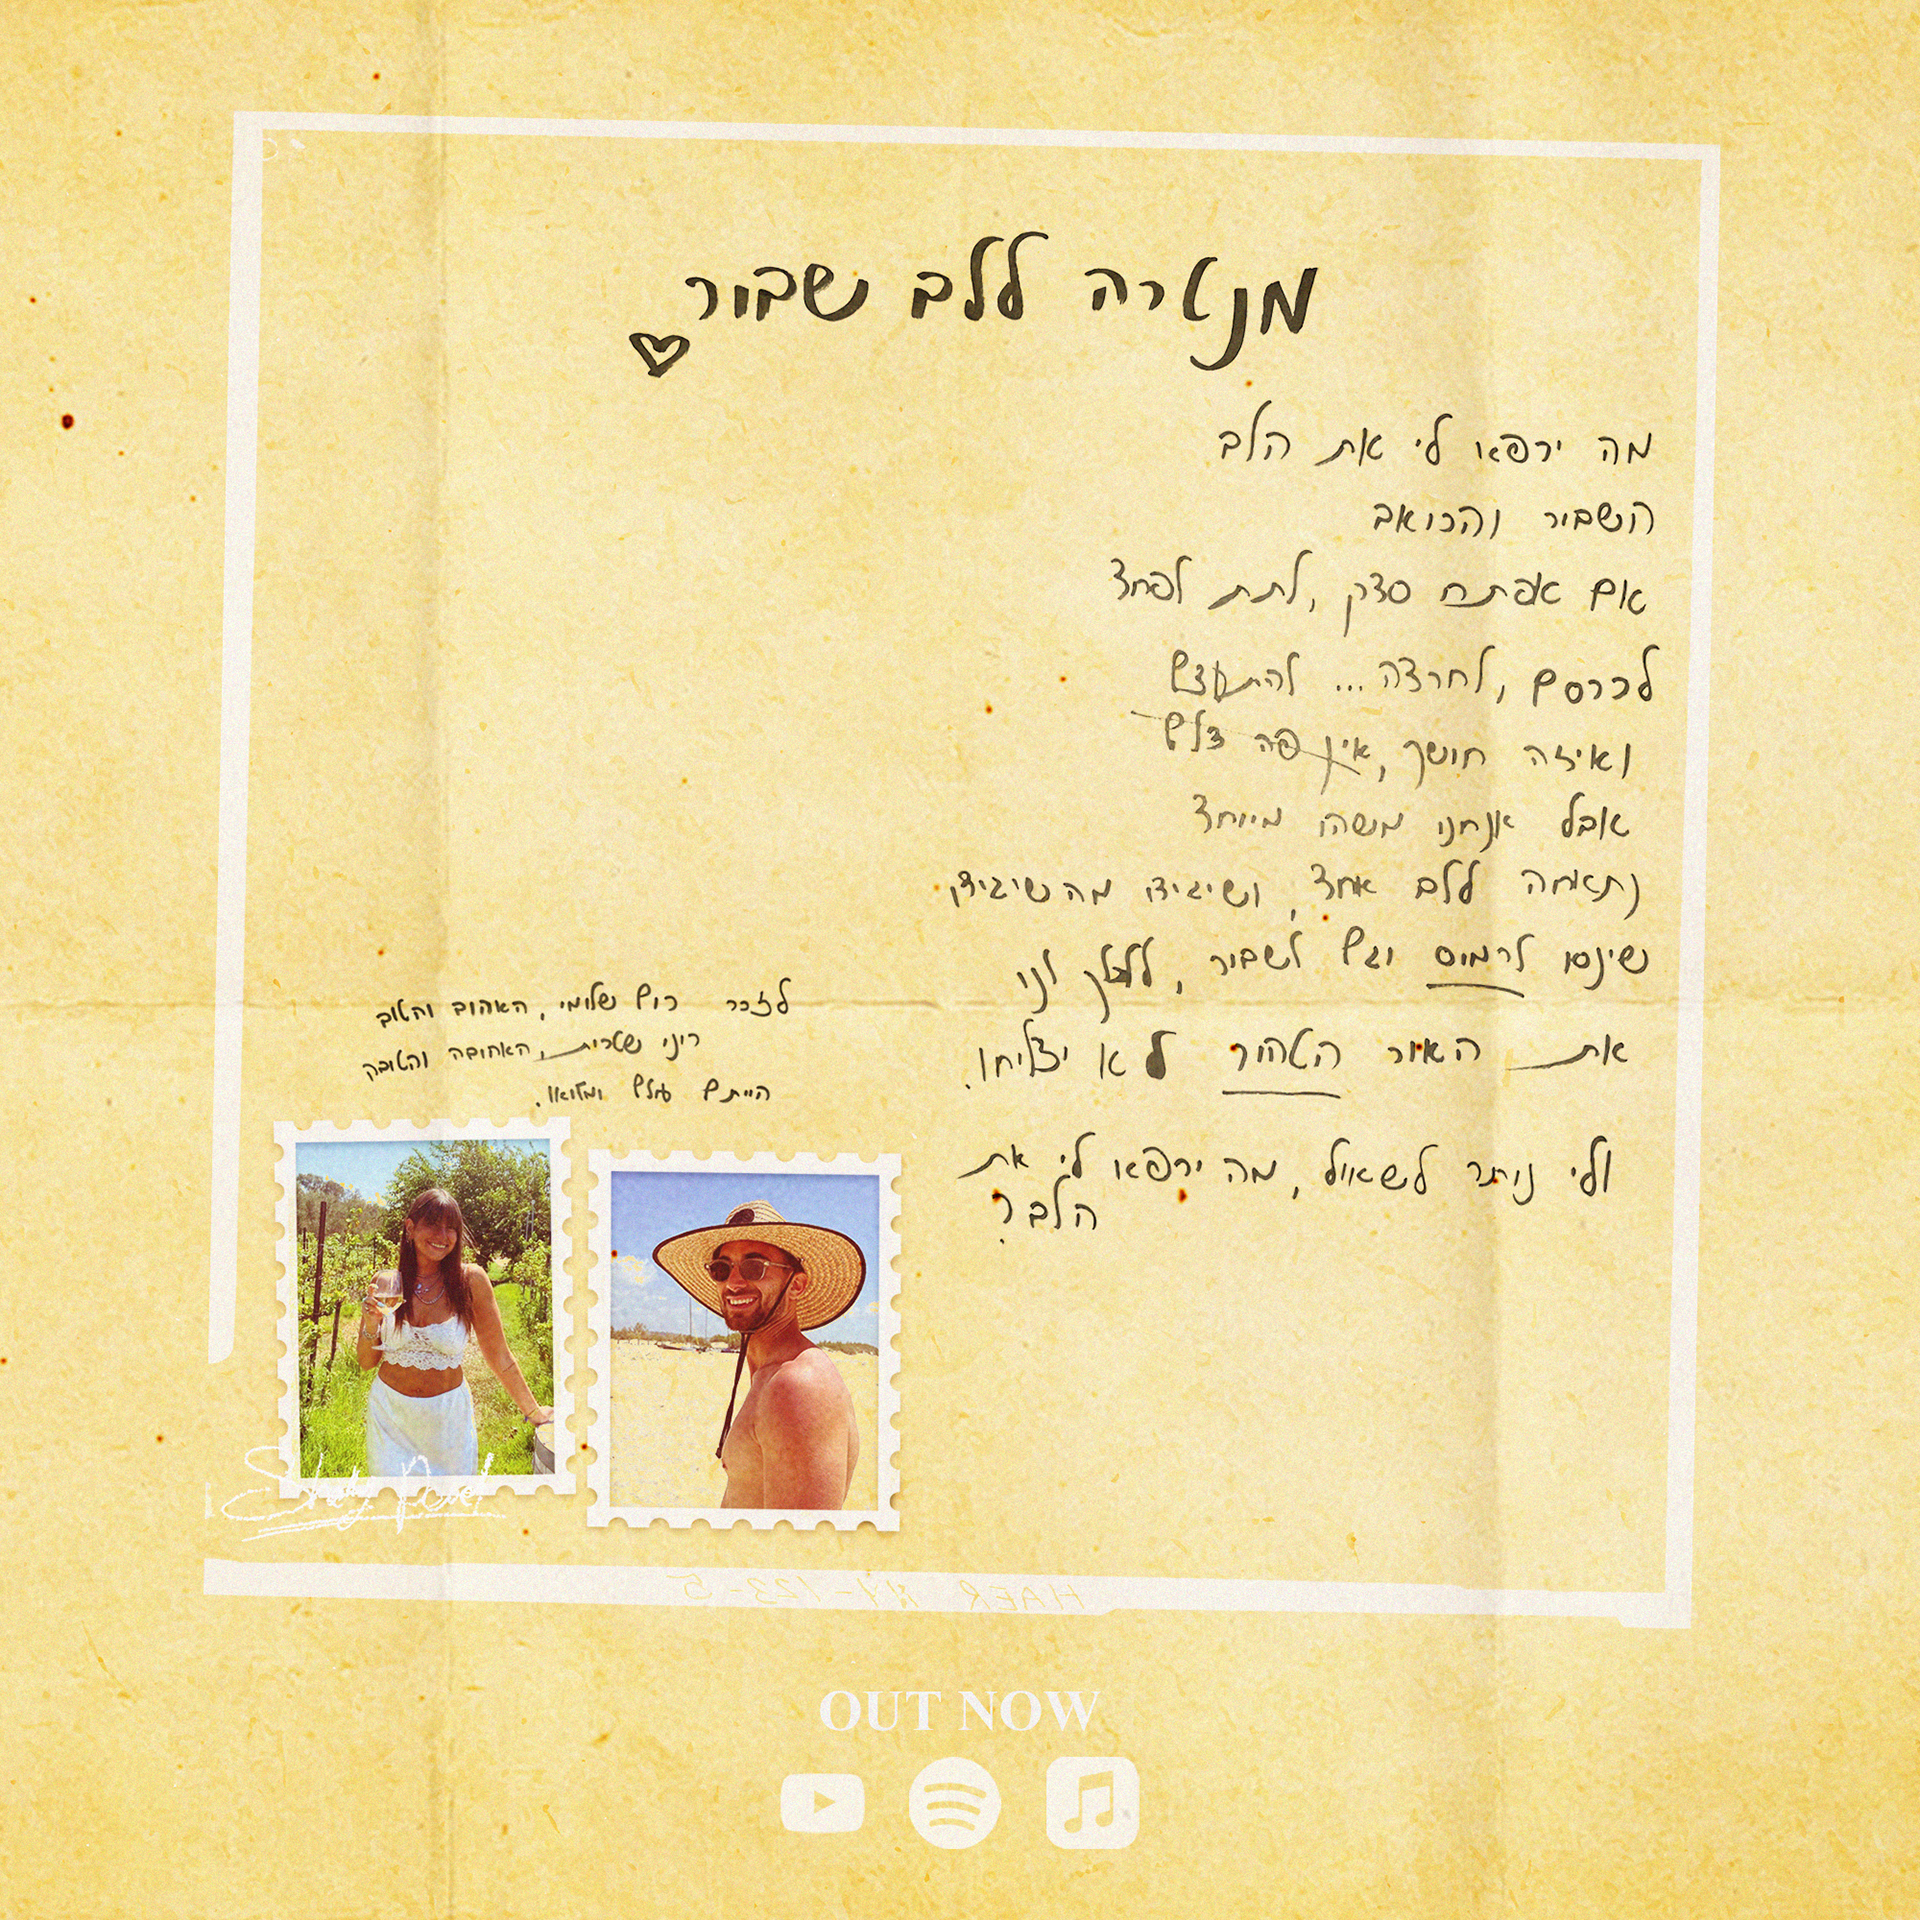 מנטרה ללב שבור
מה ירפאו לי את הלב
השביר והכואב
אם אפתח סדק, לתת לפחד
לכרסם, לחרדה... להתעצם
ואיזה חושך, אין פה צלם
אבל אנחנו משהו מיוחד
נתאחה ללב אחד, ושיגידו מה שיגידו
שינסו לרמוס וגם לשבור, ללכלך לנו
את האור הטהור לא יצליחו.
ולי נותר לשאול, מה ירפאו לי את
הלב?
לזכר רום שלומי, האהוב והטוב
רינוי שטרית, האהובה והטובה
הייתם עולם ומלואו.
HAER 123-5
OUT NOW